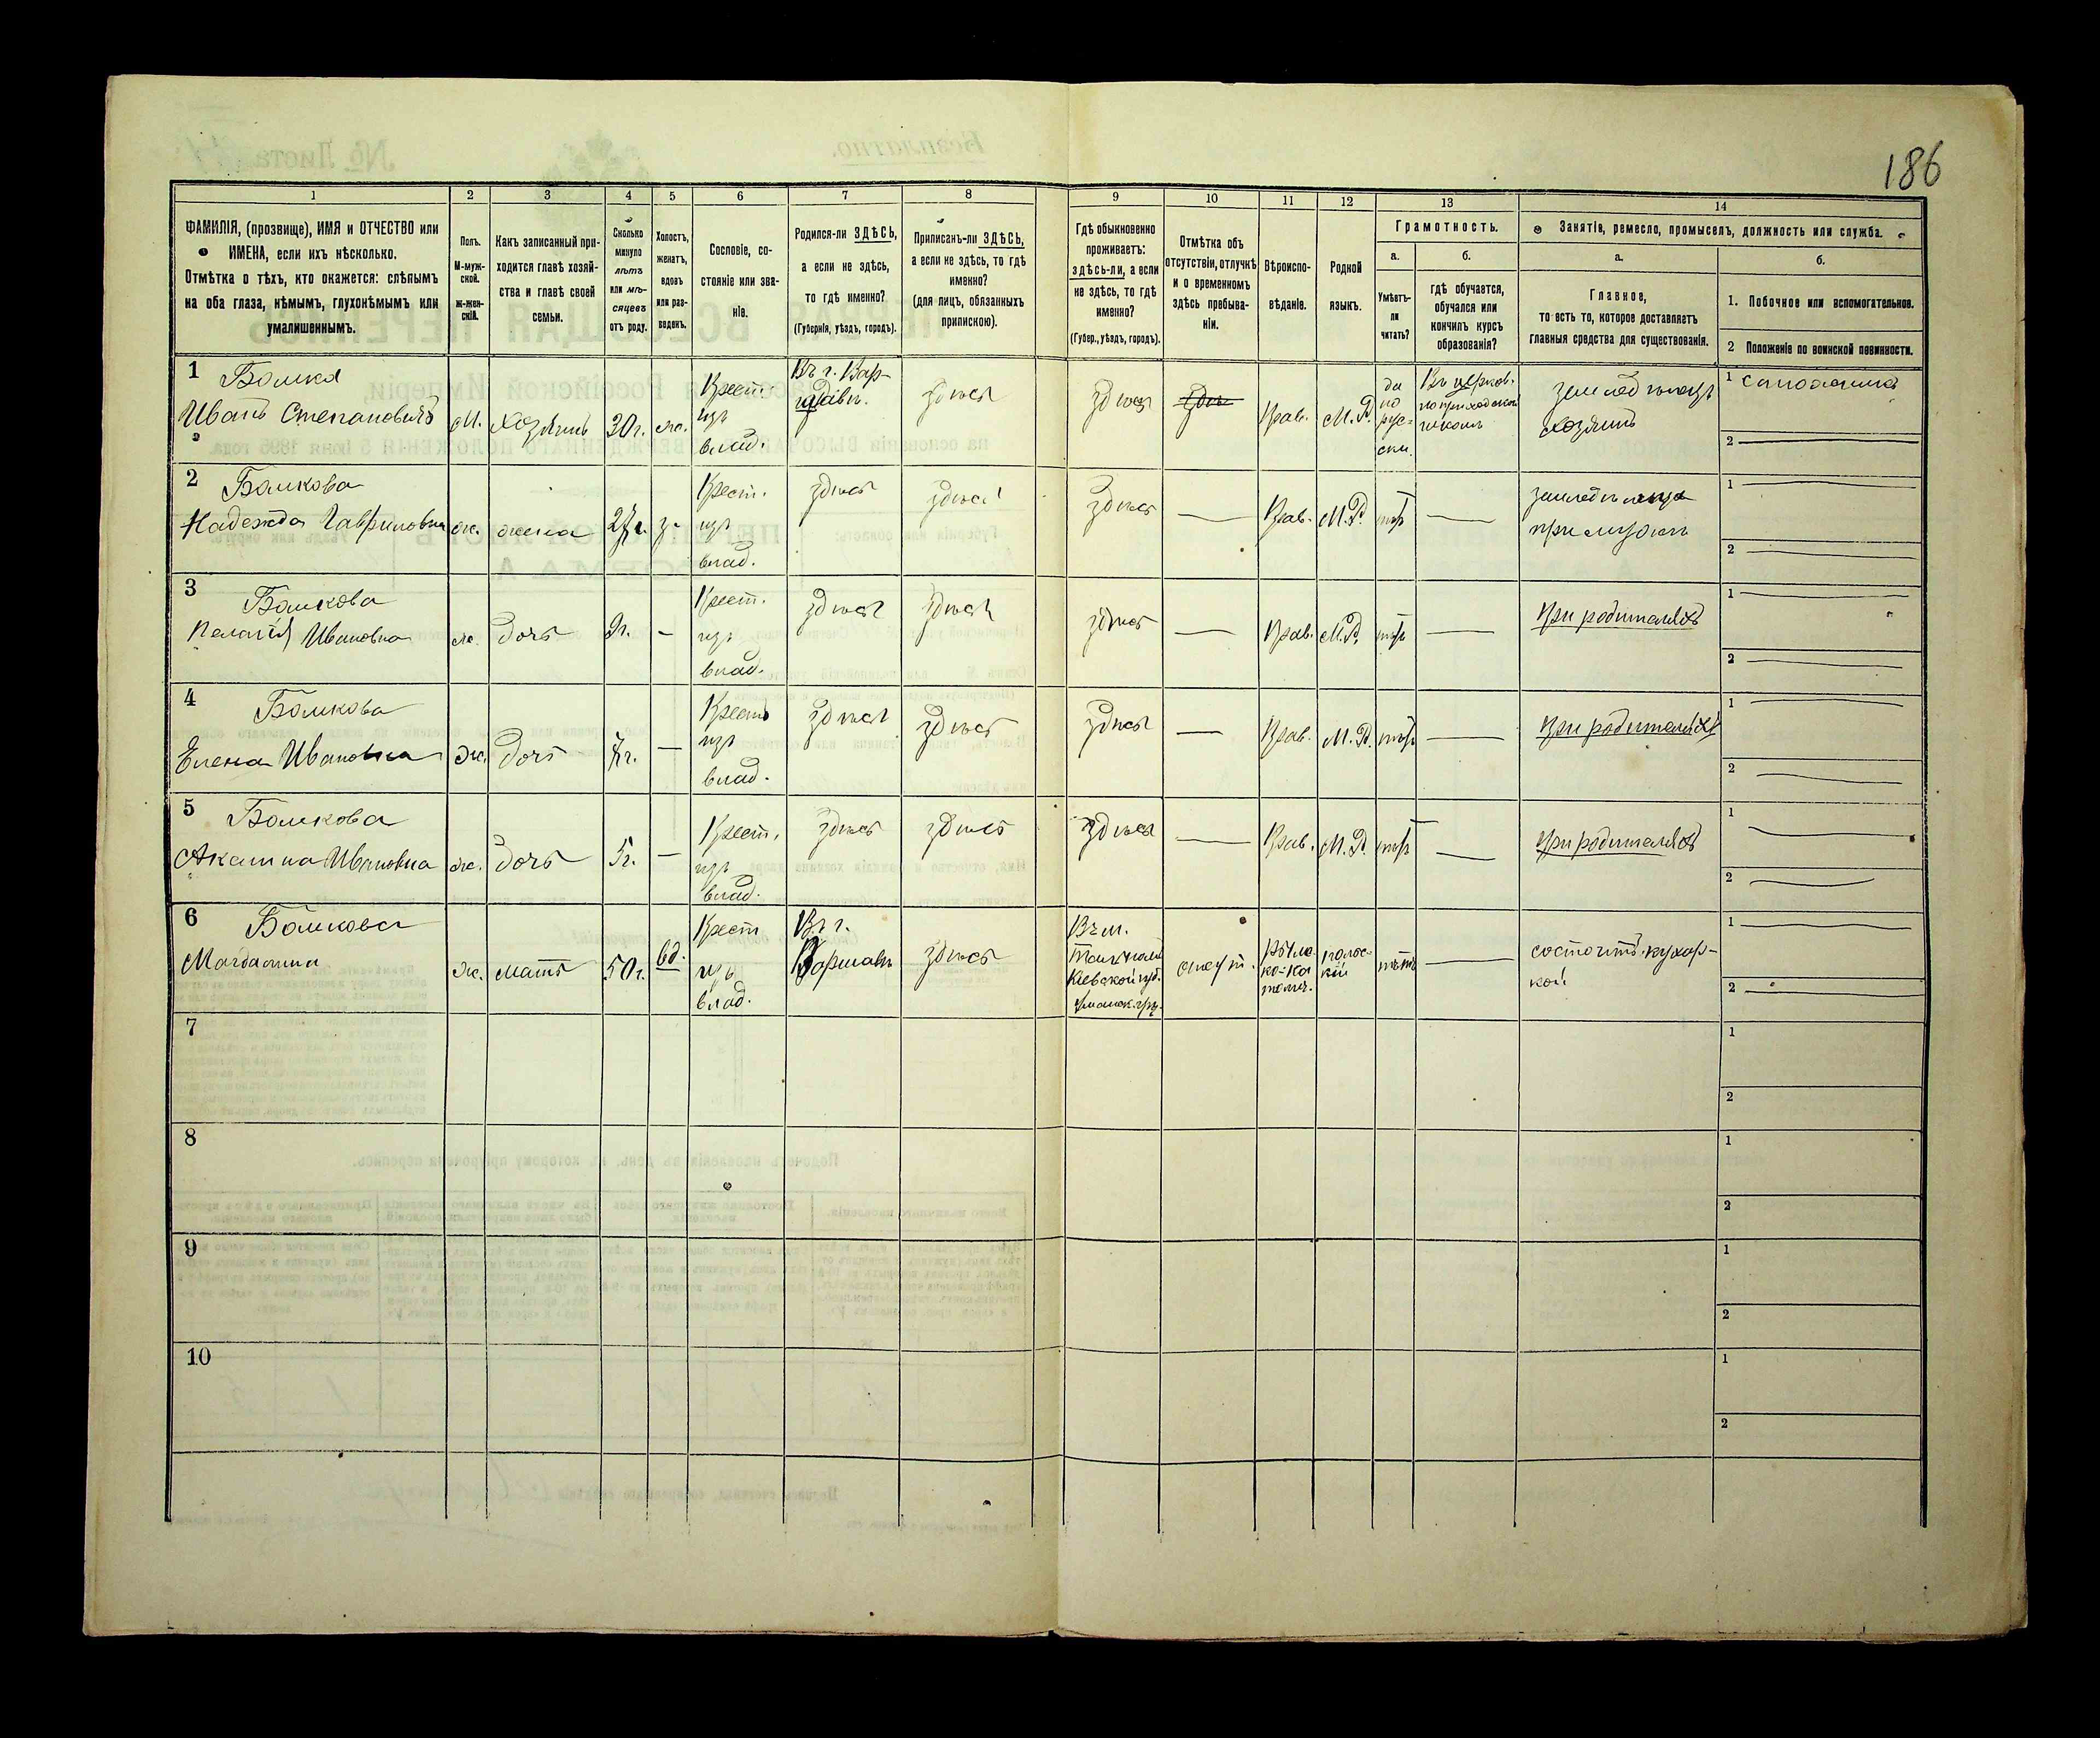 186
1 2 3 4 5 6 7 8 9 10 11 12 13 14
ФАМИЛІЯ, (прозвище), ИМЯ и ОТЧЕСТВО или
ИМЕНА, если ихъ нѣсколько.
Отмѣтка о тѣхъ, кто окажется: слѣпымъ
на оба глаза, нѣмымъ, глухонѣмымъ или
умалишеннымъ.
Полъ.
М-муж-
ской.
ж-жен-
скій.
Какъ записанный при-
ходится главѣ хозяй-
ства и главѣ своей
семьи.
Сколько
минуло
лѣтъ
или мѣ-
сяцевъ
отъ роду.
Холостъ,
женатъ,
вдовъ
или раз-
веденъ.
Сословіе, со-
стояніе или зва-
ніе.
Родился-ли ЗДѢСЬ,
а если не здѣсь,
то гдѣ именно?
(Губернія, уѣздъ, городъ).
Приписанъ-ли ЗДѢСЬ,
а если не здѣсь, то гдѣ
именно?
(для лицъ, обязанныхъ
припискою).
Гдѣ обыкновенно
проживаетъ:
здѣсь-ли, а если
не здѣсь, то гдѣ
именно?
(Губер., уѣздъ, городъ).
Отмѣтка объ
отсутствіи, отлучкѣ
и о временномъ
здѣсь пребыва-
ніи.
Вѣроиспо-
вѣданіе.
Родной
языкъ.
Грамотность.
а.
Умѣетъ-
ли
читать?
б.
гдѣ обучается,
обучался или
кончилъ курсъ
образованія?
Занятіе, ремесло, промыселъ, должность или служба.
а.
Главное,
то есть то, которое доставляетъ
главныя средства для существованія.
б.
1. Побочное или вспомогательное.
2 Положеніе по воинской повинности.
1
Иванъ Степановичъ
м.
Хозяинъ
30 г.
ж.
Крест.
изъ
влад.
Въ г. Вар-
шавѣ.
здѣсь
здѣсь
Прав.
М. Р.
да
по
рус-
ски.
Въ церков.
приходской
школѣ
земледѣлецъ
хозяинъ
1
2
2
Надежда Гавриловна
ж.
жена
27 г.
з.
Крест.
изъ
влад.
здѣсь
здѣсь
здѣсь
Прав.
М. Р.
нѣтъ
при мужѣ
1
2
3
Пелагія Ивановна
ж.
дочь
9 г.
Крест.
изъ
влад.
здѣсь
здѣсь
здѣсь
Прав.
М. Р.
нѣтъ
при родителяхъ
1
2
4
Елена Ивановна
ж.
дочь
7 г.
Крест.
изъ
влад.
здѣсь
здѣсь
здѣсь
Прав.
М. Р.
нѣтъ
при родителяхъ
1
2
5
Ивановна
ж.
дочь
5 г.
Крест.
изъ
влад.
здѣсь
здѣсь
здѣсь
Прав.
М. Р.
нѣтъ
при родителяхъ
1
2
6
Магдалина
ж.
мать
50 г.
вд.
Крест
изъ
влад.
Въ г.
Варшавѣ
здѣсь
Въ м.
Кіевской губ.
Уманск. уѣз.
отсут.
Римо
ко-ка
толич.
польс-
кій
нѣтъ
состоитъ кухар-
кой
1
2
7
1
2
8
1
2
9
1
2
10
1
2